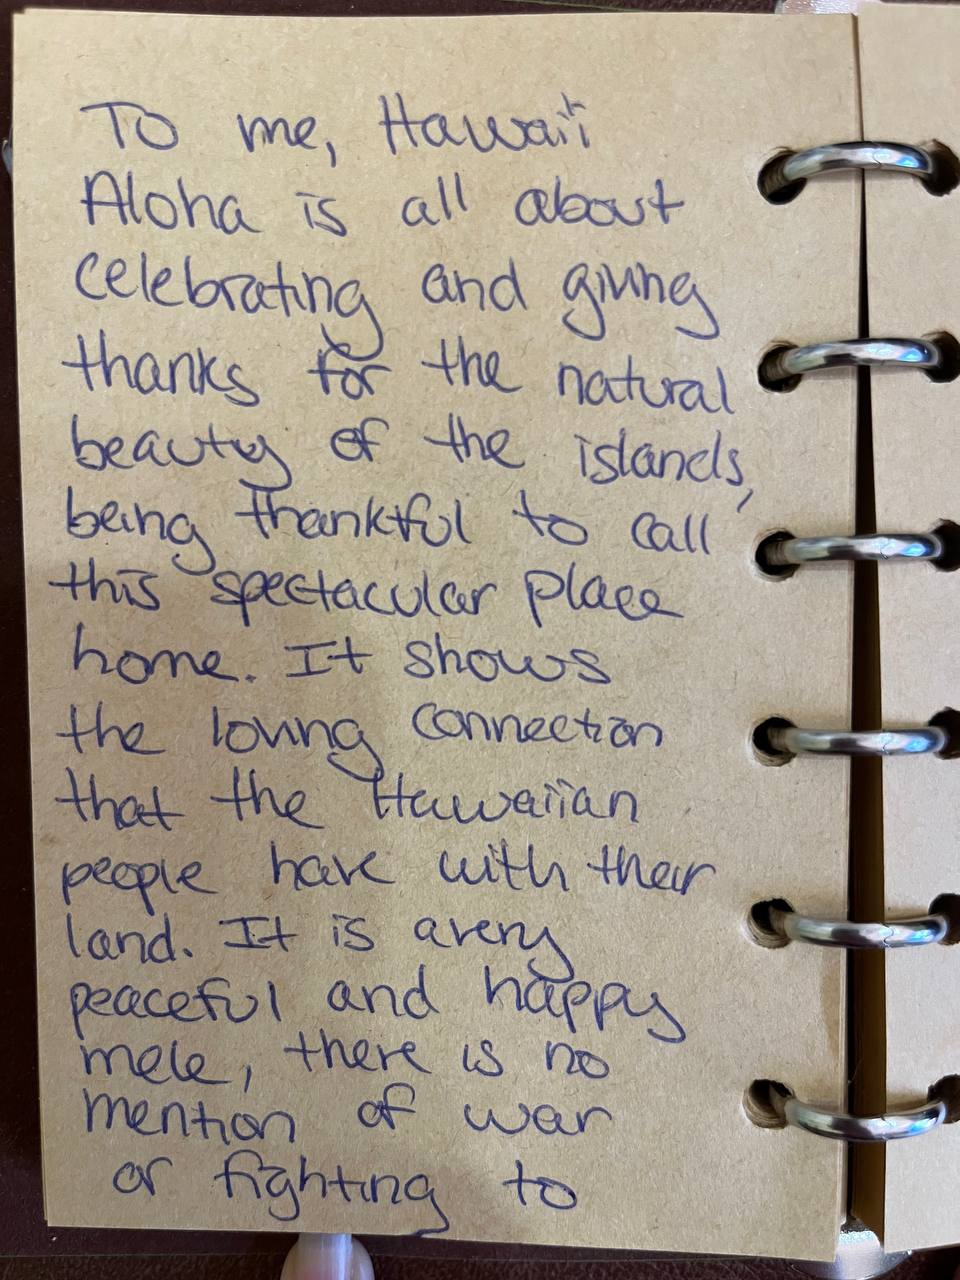 To me, Hawai'i
Aloha is all about
celebrating and giving
thanks for the natural
beauty of the islands,
being thankful to call
this spectacular place
home. It shows
the loving connection
that the Hawaiian
people have with their
land. It is a very
peaceful and happy
mele, there is no
mention of war
or fighting to